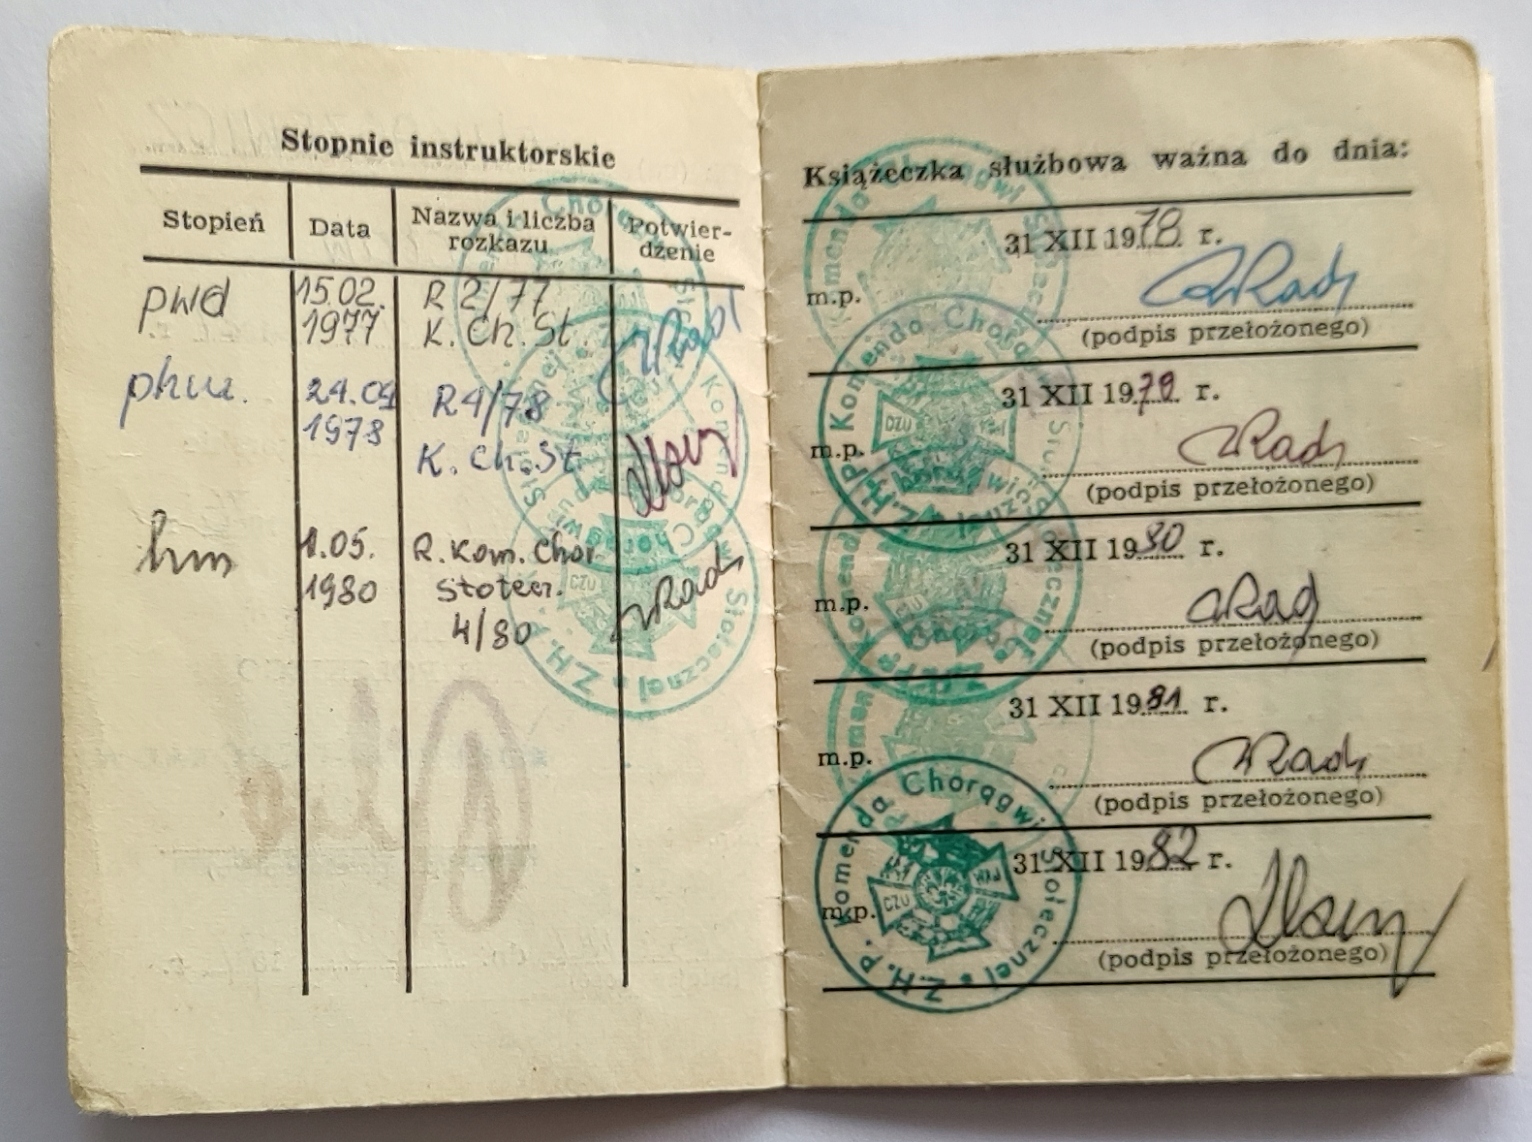 Stopnie instruktorskie
Stopień Data Nazwa i liczba rozkazu Potwierdzenie
pwd 15.02. R 2/77
1977 K. Ch. St.
phm. 24.04 R4/78
1978 K. Ch. St
hm 1.05. R. Kom. Chor
1980 Stołecz.
4/80
Książeczka służbowa ważna do dnia:
31 XII 1978 r.
m.p.
(podpis przełożonego)
31 XII 1979 r.
m.p.
(podpis przełożonego)
31 XII 1980 r.
m.p.
(podpis przełożonego)
31 XII 1981 r.
m.p.
(podpis przełożonego)
31 XII 1982 r.
m.p.
(podpis przełożonego)
Z.H.P. Komenda Chorągwi Stołecznej